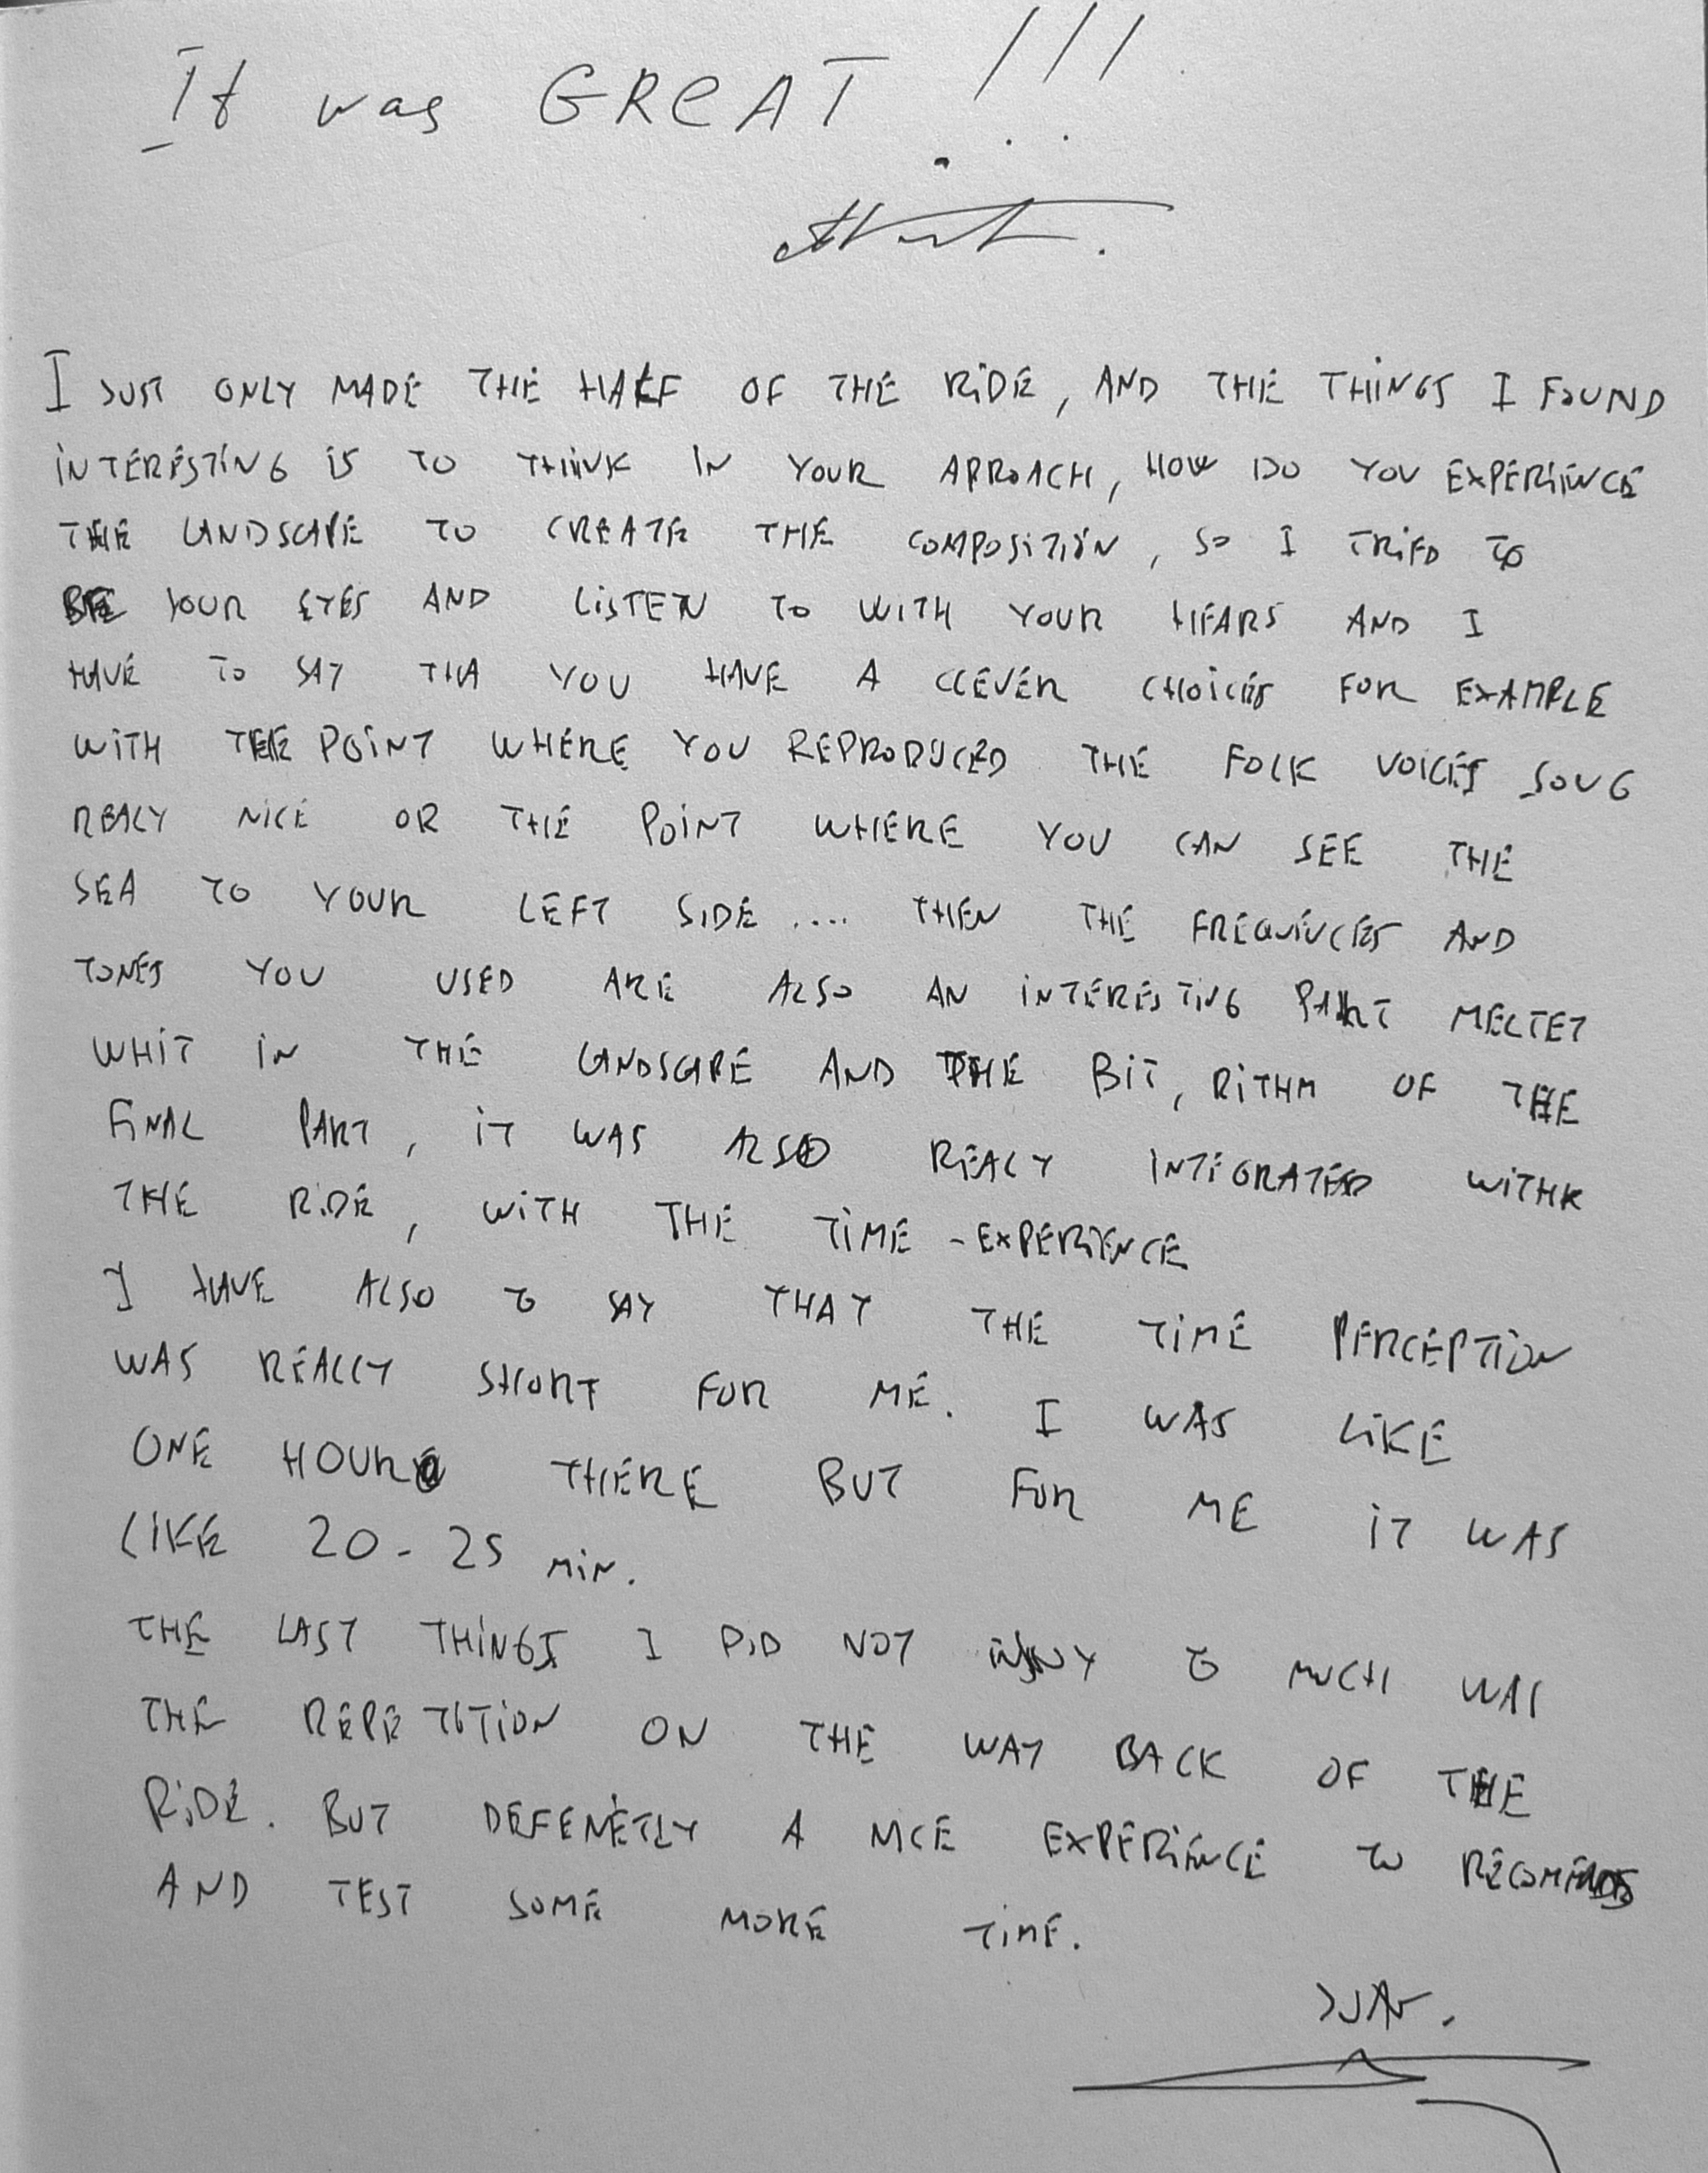 It was GREAT !!!
I JUST ONLY MADE THE HALF OF THE RIDE, AND THE THINGS I FOUND
INTERESTING IS TO THINK IN YOUR APROACH, HOW DO YOU EXPERIENCE
THE LANDSCAPE TO CREATE THE COMPOSITION, SO I TRIED TO
BE YOUR EYES AND LISTEN TO WITH YOUR HEARS AND I
HAVE TO SAY THA YOU HAVE A CLEVER CHOICES FOR EXAMPLE
WITH THE POINT WHERE YOU REPRODUCED THE FOLK VOICES SONG
REALY NICE OR THE POINT WHERE YOU CAN SEE THE
SEA TO YOUR LEFT SIDE .... THEN THE FREQUENCES AND
TONES YOU USED ARE ALSO AN INTERESTING PART MELTET
WHIT IN THE LANDSCAPE AND THE BIT, RITHM OF THE
FINAL PART, IT WAS ALSO REALY INTEGRATED WITH
THE RIDE, WITH THE TIME-EXPERIENCE
I HAVE ALSO TO SAY THAT THE TIME PERCEPTION
WAS REALLY SHORT FOR ME. I WAS LIKE
ONE HOUR THERE BUT FOR ME IT WAS
LIKE 20-25 MIN.
THE LAST THINGS I DID NOT TO MUCH WAS
THE REPETITION ON THE WAY BACK OF THE
RIDE. BUT DEFENETLY A NICE EXPERIENCE TO
AND TEST SOME MORE TIME.
JUAN.